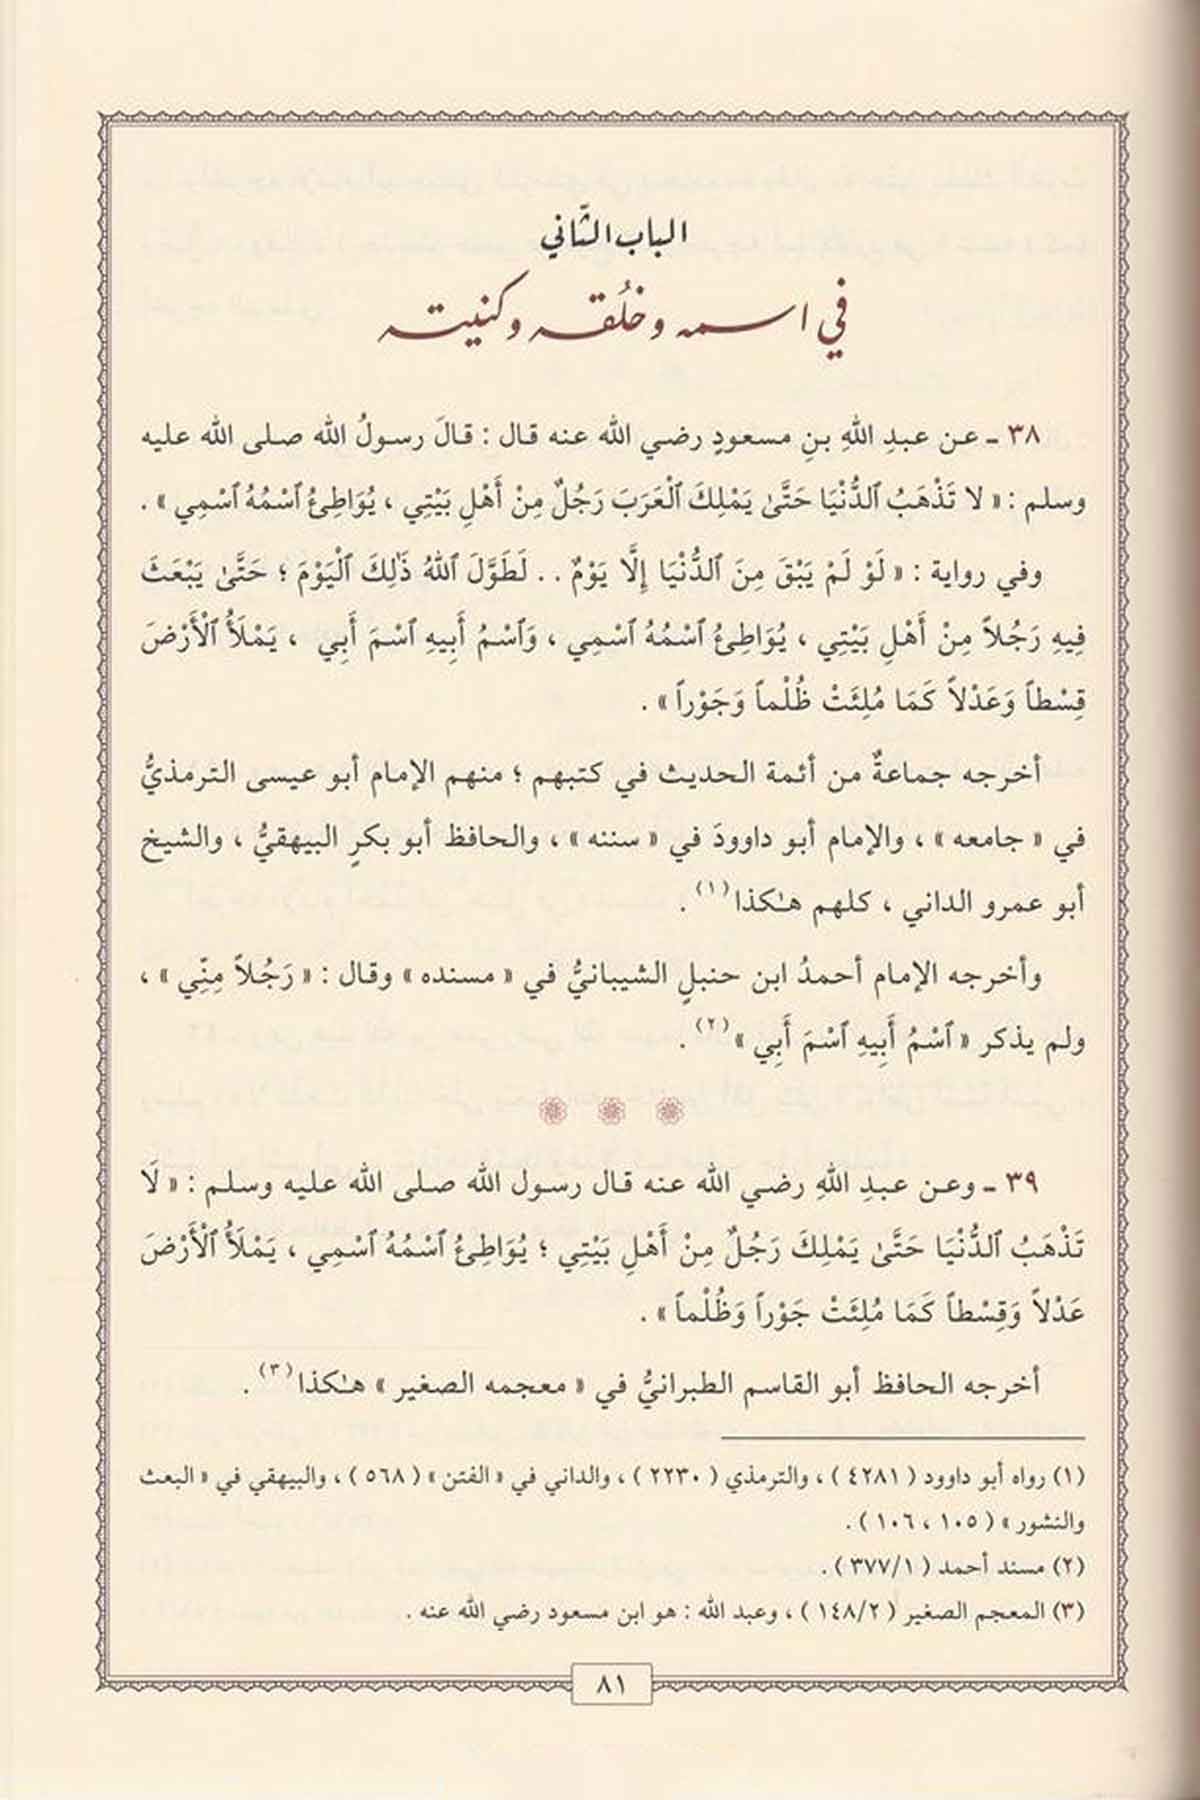 الباب الثّاني
في اسمه وخُلُقه وكنيته
٣٨ ـ عـن عبدِ اللهِ بنِ مسعودٍ رضـي الله عنه قـال : قـالَ رسـولُ الله صـلى الله عليه
وسلم : « لا تَذْهَبُ ٱلدُّنْيَا حَتَّىٰ يَمْلِكَ ٱلْعَرَبَ رَجُلٌ مِنْ أَهْلِ بَيْتِي ، يُوَاطِئُ ٱسْمُهُ ٱسْمِي » .
وفي رواية : « لَوْ لَمْ يَبْقَ مِنَ ٱلدُّنْيَا إِلَّا يَوْمٌ . . لَطَوَّلَ ٱللهُ ذَٰلِكَ ٱلْيَوْمَ ؛ حَتَّىٰ يَبْعَثَ
فِيهِ رَجُلاً مِنْ أَهْلِ بَيْتِي ، يُوَاطِئُ ٱسْمُهُ ٱسْمِي ، وَٱسْمُ أَبِيهِ ٱسْمَ أَبِي ، يَمْلَأُ ٱلْأَرْضَ
قِسْطاً وَعَدْلاً كَمَا مُلِئَتْ ظُلْماً وَجَوْراً » .
أخرجه جماعةٌ من أئمة الحديث في كتبهم ؛ منهم الإمام أبو عيسى الترمذيُّ
في « جامعه » ، والإمام أبو داوودَ في « سننه » ، والحافظ أبو بكرٍ البيهقيُّ ، والشيخ
أبو عمرو الداني ، كلهم هـٰكذا(١) .
وأخرجه الإمام أحمدُ ابن حنبلٍ الشيبانيُّ في « مسنده » وقال : « رَجُلاً مِنِّي » ،
ولم يذكر « ٱسْمُ أَبِيهِ ٱسْمَ أَبِي »(٢) .
٣٩ ـ وعـن عبـدِ اللهِ رضـي الله عنه قال رسـول الله صلى الله عليـه وسلـم : « لَا
تَذْهَبُ ٱلدُّنْيَا حَتَّىٰ يَمْلِكَ رَجُلٌ مِنْ أَهْلِ بَيْتِي ؛ يُوَاطِئُ ٱسْمُهُ ٱسْمِي ، يَمْلَأُ ٱلْأَرْضَ
عَدْلاً وَقِسْطاً كَمَا مُلِئَتْ جَوْراً وَظُلْماً » .
أخرجه الحافظ أبو القاسم الطبرانيُّ في « معجمه الصغير » هـٰكذا(٣) .
(١) رواه أبو داوود ( ٤٢٨١ ) ، والترمذي ( ٢٢٣٠ ) ، والداني في « الفتن » ( ٥٦٨ ) ، والبيهقي في « البعث
والنشور » ( ١٠٥ ، ١٠٦ ) .
(٢) مسند أحمد ( ٣٧٧/١ ) .
(٣) المعجم الصغير ( ١٤٨/٢ ) ، وعبد الله : هو ابن مسعود رضي الله عنه .
٨١